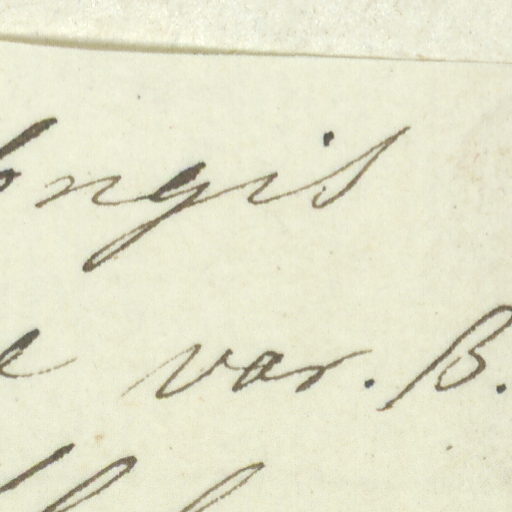 ongis
e var. B.